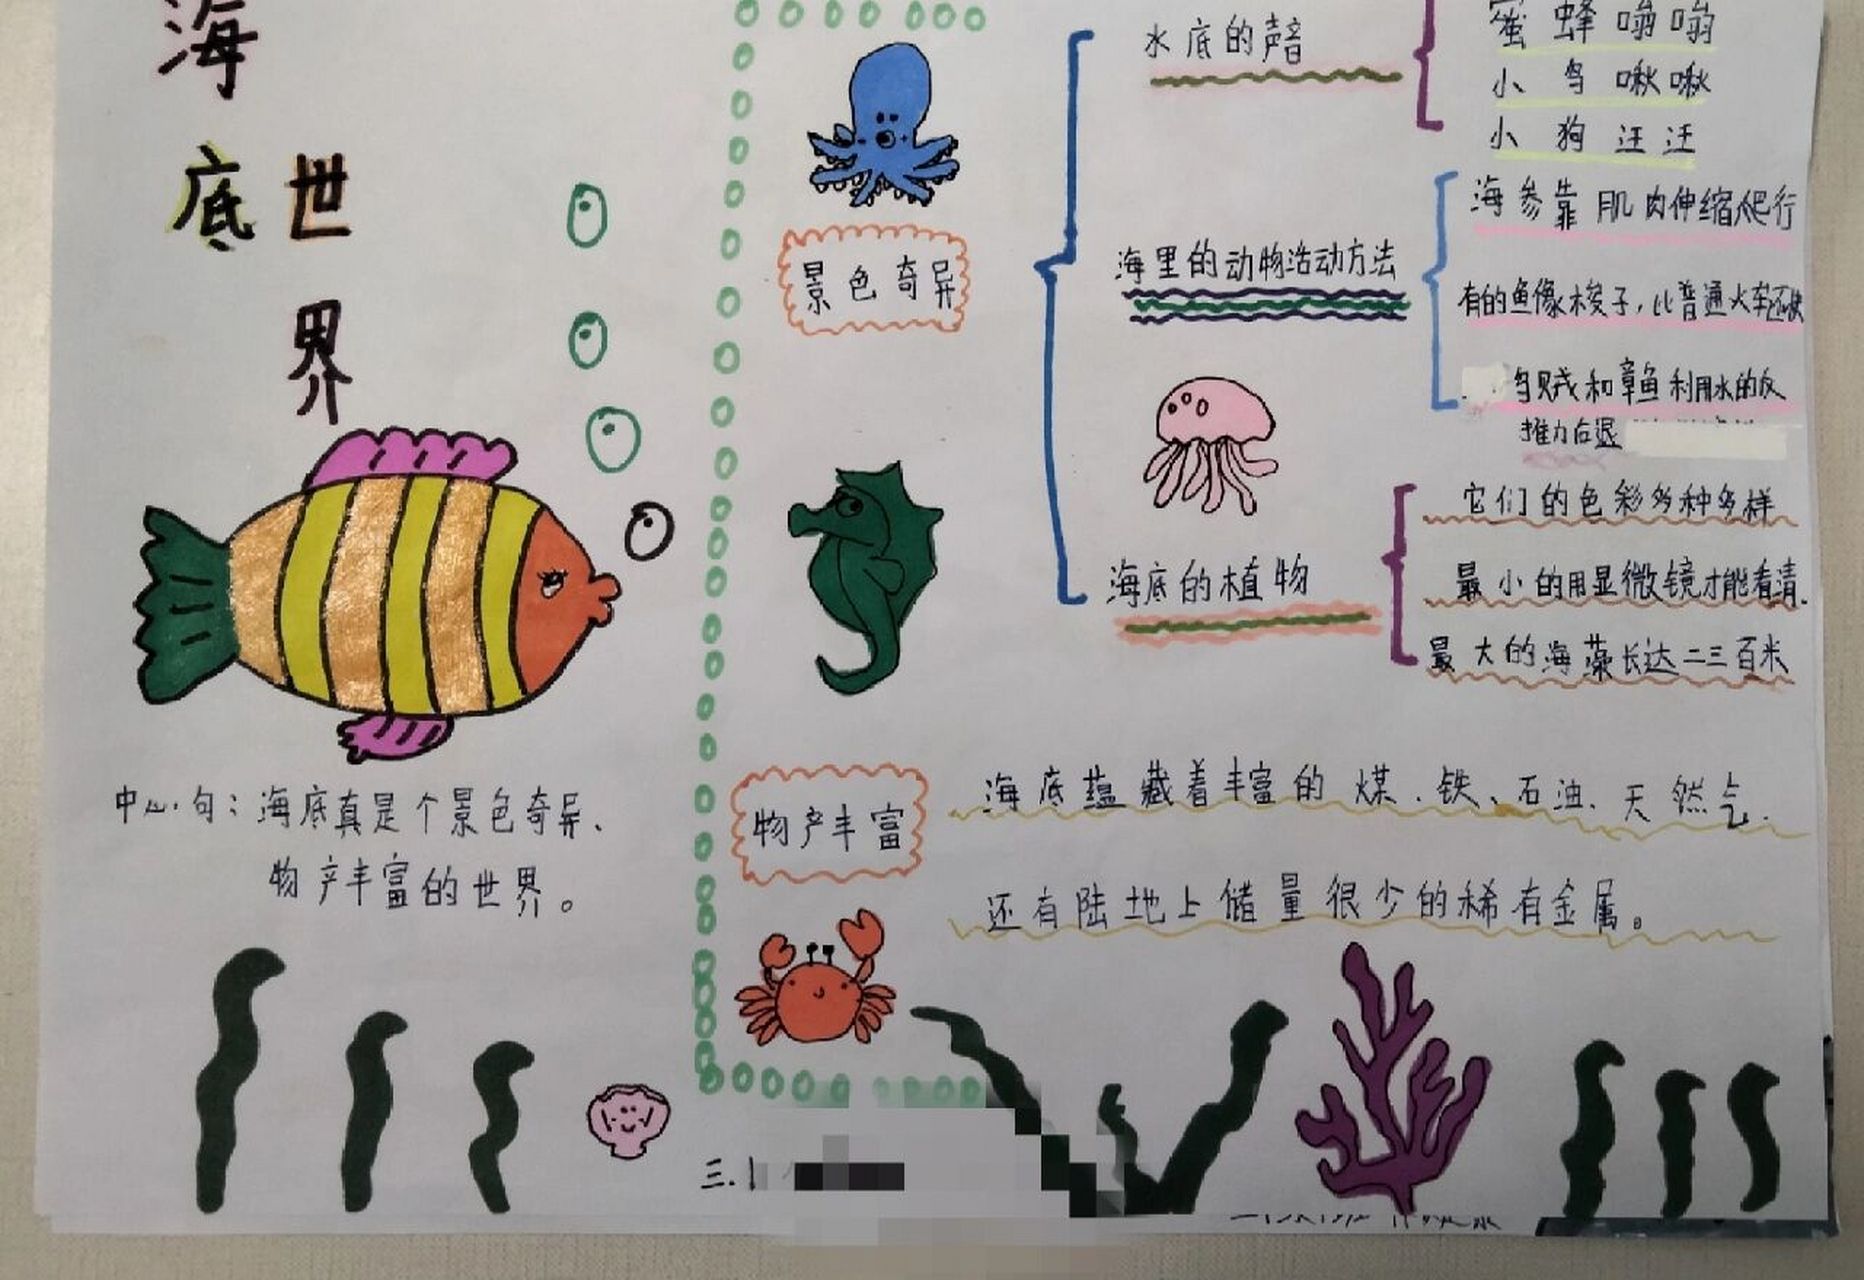 海底世界
中心句：海底真是个景色奇异、
物产丰富的世界。
景色奇异
水底的声音
蜜蜂嗡嗡
小鸟啾啾
小狗汪汪
海里的动物活动方法
海参靠肌肉伸缩爬行
有的鱼像梭子，比普通火车还快
乌贼和章鱼利用水的反
推力后退
海底的植物
它们的色彩多种多样
最小的用显微镜才能看清.
最大的海藻长达二三百米
物产丰富
海底蕴藏着丰富的煤、铁、石油、天然气.
还有陆地上储量很少的稀有金属。
三.1